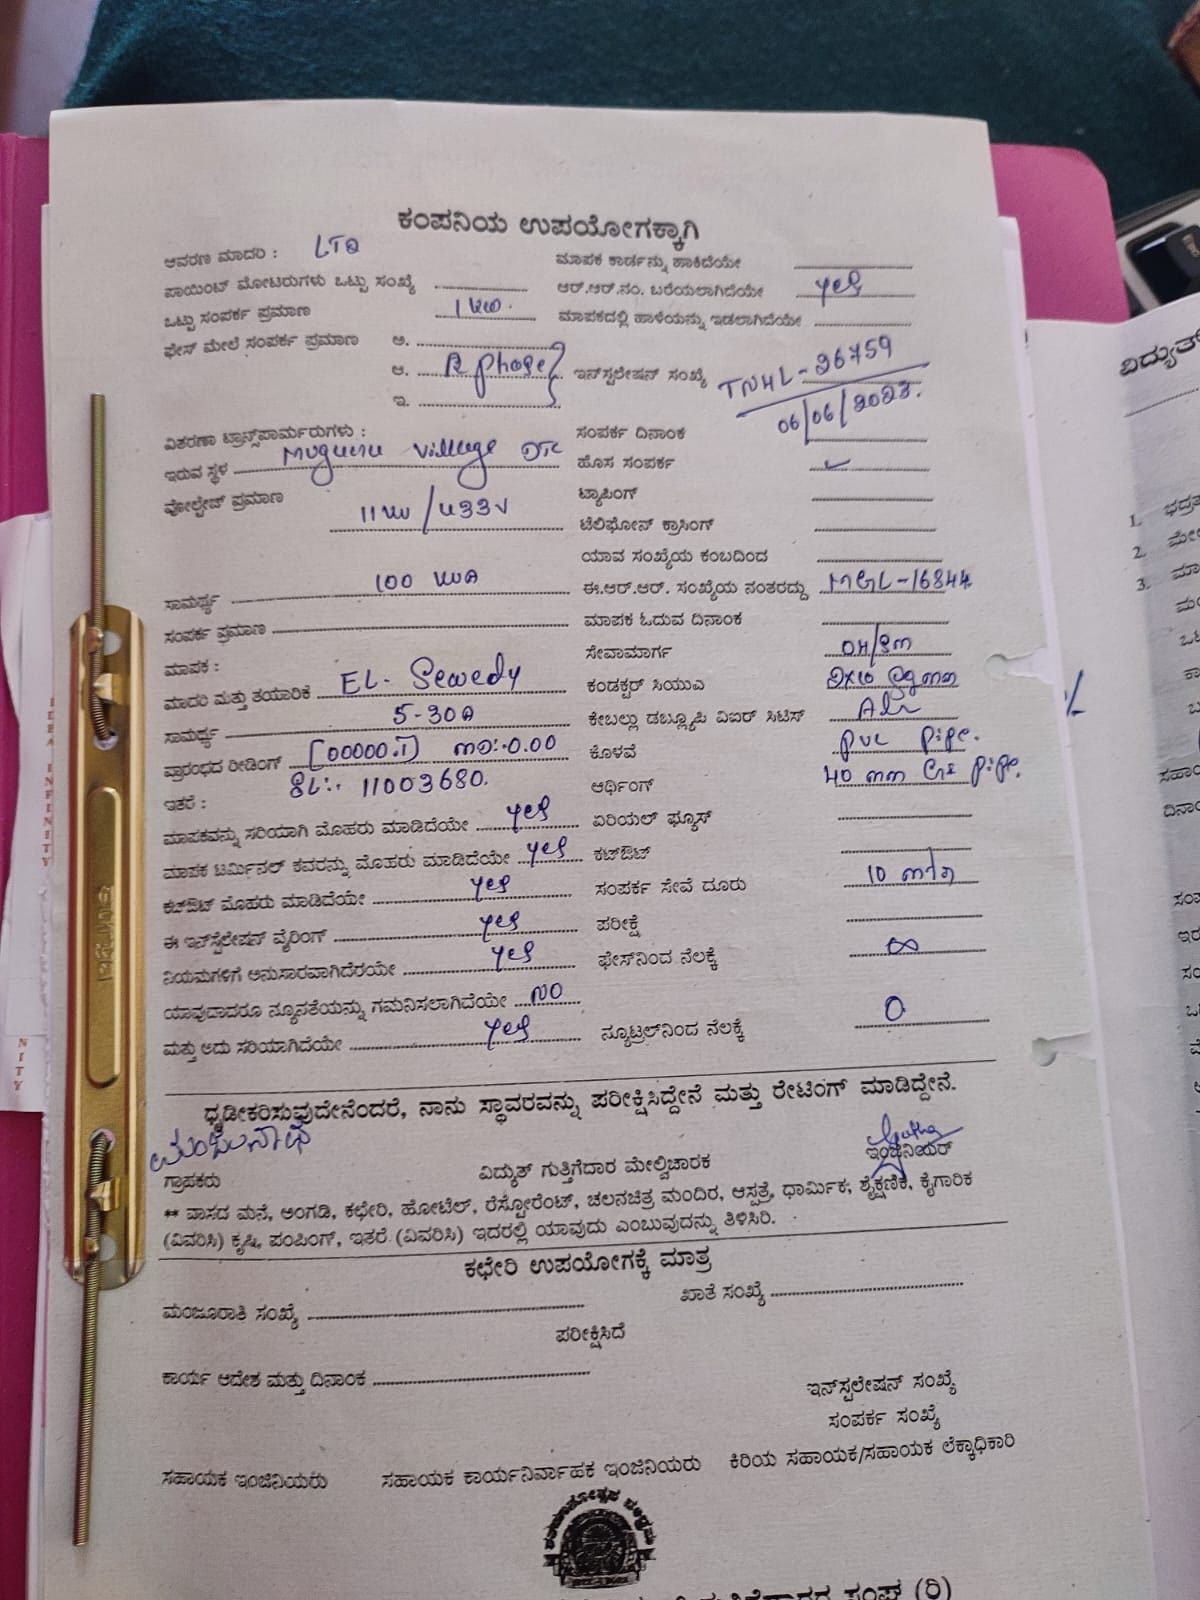 ಕಂಪನಿಯ ಉಪಯೋಗಕ್ಕಾಗಿ
ಆವರಣ ಮಾದರಿ : LT2 ಮಾಪಕ ಕಾರ್ಡನ್ನು ಹಾಕಿದೆಯೇ
ಪಾಯಿಂಟ್ ಮೋಟರುಗಳು ಒಟ್ಟು ಸಂಖ್ಯೆ ಆರ್.ಆರ್.ನಂ. ಬರೆಯಲಾಗಿದೆಯೇ yes
ಒಟ್ಟು ಸಂಪರ್ಕ ಪ್ರಮಾಣ 1 kw. ಮಾಪಕದಲ್ಲಿ ಹಾಳೆಯನ್ನು ಇಡಲಾಗಿದೆಯೇ
ಫೇಸ್ ಮೇಲೆ ಸಂಪರ್ಕ ಪ್ರಮಾಣ ಅ.
ಆ. R phase ಇನ್‌ಸ್ಟಲೇಷನ್ ಸಂಖ್ಯೆ TNHL-36759
ಇ. 06/06/2023.
ವಿತರಣಾ ಟ್ರಾನ್ಸ್‌ಫಾರ್ಮರುಗಳು : ಸಂಪರ್ಕ ದಿನಾಂಕ
ಇರುವ ಸ್ಥಳ village ಹೊಸ ಸಂಪರ್ಕ ✓
ವೋಲ್ಟೇಜ್ ಪ್ರಮಾಣ 11kv/433v ಟ್ಯಾಪಿಂಗ್
ಟೆಲಿಫೋನ್ ಕ್ರಾಸಿಂಗ್
ಯಾವ ಸಂಖ್ಯೆಯ ಕಂಬದಿಂದ
ಸಾಮರ್ಥ್ಯ 100 kva ಈ.ಆರ್.ಆರ್. ಸಂಖ್ಯೆಯ ನಂತರದ್ದು MGL-16844
ಸಂಪರ್ಕ ಪ್ರಮಾಣ ಮಾಪಕ ಓದುವ ದಿನಾಂಕ
ಮಾಪಕ : ಸೇವಾಮಾರ್ಗ OH/sm
ಮಾದರಿ ಮತ್ತು ತಯಾರಿಕೆ EL- Sewedy ಕಂಡಕ್ಟರ್ ಸಿಯುವಿ
ಸಾಮರ್ಥ್ಯ 5-30A ಕೇಬಲ್ಲು ಡಬ್ಲ್ಯೂಪಿ ವಿಐರ್ ಸಿಟಿಸ್
ಪ್ರಾರಂಭದ ರೀಡಿಂಗ್ [00000.1] :-0.00 ಕೊಳವೆ pvc pipe.
ಇತರೆ : SL:- 11003680. ಆರ್ಥಿಂಗ್ 40 mm GI pipe.
ಮಾಪಕವನ್ನು ಸರಿಯಾಗಿ ಮೊಹರು ಮಾಡಿದೆಯೇ yes ಏರಿಯಲ್ ಫ್ಯೂಸ್
ಮಾಪಕ ಟರ್ಮಿನಲ್ ಕವರನ್ನು ಮೊಹರು ಮಾಡಿದೆಯೇ yes ಕಟ್‌ಔಟ್
ಕಟ್‌ಔಟ್ ಮೊಹರು ಮಾಡಿದೆಯೇ yes ಸಂಪರ್ಕ ಸೇವೆ ದೂರು 10 mtr
ಈ ಇನ್‌ಸ್ಟಲೇಷನ್ ವೈರಿಂಗ್ yes ಪರೀಕ್ಷೆ
ನಿಯಮಗಳಿಗೆ ಅನುಸಾರವಾಗಿದೆರಯೇ yes ಫೇಸ್‌ನಿಂದ ನೆಲಕ್ಕೆ ∞
ಯಾವುದಾದರೂ ನ್ಯೂನತೆಯನ್ನು ಗಮನಿಸಲಾಗಿದೆಯೇ NO
ಮತ್ತು ಅದು ಸರಿಯಾಗಿದೆಯೇ yes ನ್ಯೂಟ್ರಲ್‌ನಿಂದ ನೆಲಕ್ಕೆ 0
ಧೃಡೀಕರಿಸುವುದೇನೆಂದರೆ, ನಾನು ಸ್ಥಾವರವನ್ನು ಪರೀಕ್ಷಿಸಿದ್ದೇನೆ ಮತ್ತು ರೇಟಿಂಗ್ ಮಾಡಿದ್ದೇನೆ.
ಮಂಜುನಾಥ
ಗ್ರಾಹಕರು ವಿದ್ಯುತ್ ಗುತ್ತಿಗೆದಾರ ಮೇಲ್ವಿಚಾರಕ ಇಂಜಿನಿಯರ್
** ವಾಸದ ಮನೆ, ಅಂಗಡಿ, ಕಛೇರಿ, ಹೋಟೆಲ್, ರೆಸ್ಟೋರೆಂಟ್, ಚಲನಚಿತ್ರ ಮಂದಿರ, ಆಸ್ಪತ್ರೆ, ಧಾರ್ಮಿಕ, ಶೈಕ್ಷಣಿಕ, ಕೈಗಾರಿಕ
(ವಿವರಿಸಿ) ಕೃಷಿ, ಪಂಪಿಂಗ್, ಇತರೆ (ವಿವರಿಸಿ) ಇದರಲ್ಲಿ ಯಾವುದು ಎಂಬುವುದನ್ನು ತಿಳಿಸಿರಿ.
ಕಛೇರಿ ಉಪಯೋಗಕ್ಕೆ ಮಾತ್ರ
ಮಂಜೂರಾತಿ ಸಂಖ್ಯೆ ಖಾತೆ ಸಂಖ್ಯೆ
ಪರೀಕ್ಷಿಸಿದೆ
ಕಾರ್ಯ ಆದೇಶ ಮತ್ತು ದಿನಾಂಕ
ಇನ್‌ಸ್ಟಲೇಷನ್ ಸಂಖ್ಯೆ
ಸಂಪರ್ಕ ಸಂಖ್ಯೆ
ಸಹಾಯಕ ಇಂಜಿನಿಯರು ಸಹಾಯಕ ಕಾರ್ಯನಿರ್ವಾಹಕ ಇಂಜಿನಿಯರು ಕಿರಿಯ ಸಹಾಯಕ/ಸಹಾಯಕ ಲೆಕ್ಕಾಧಿಕಾರಿ
ಸಂಘ (ರಿ)
ವಿದ್ಯುತ್
1.
2.
3.